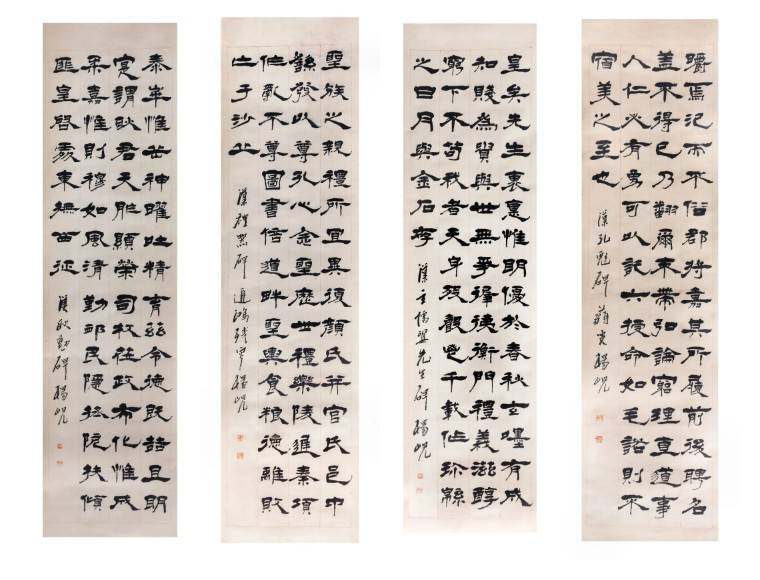 皭焉汜而不俗郡將嘉其所履前後聘名
蓋不得已乃翻爾束帶弘論窮理直道事
人仁必有勇可以託六授命如毛諾則不
宿美之至也
漢孔彪碑 楊峴
皇矣先生褱惪惟明優於春秋玄嘿有成
知賤為貴與世無爭㯿徥衡門禮義滋醇
窮下不苟我者天身歿聲邕千載作珍緜
之日月與金石存
漢玄儒婁先生碑 楊峴
聖族之親禮所宜異復顏氏并官氏邑中
繇發以尊孔心念聖歷世禮樂陵遲秦項
作亂不尊圖書倍道畔聖輿食粮德離敗
亡于沙丘
漢禮器碑 遲鴻殘叟楊峴
泰華惟岳神曜吐精育茲令德既喆且明
寔謂耿君天胙顯榮司牧莅政布化惟成
柔嘉惟則穆如風清勤卹民隱拯阨扶傾
匪皇啓處東撫西征
漢耿勳碑 楊峴